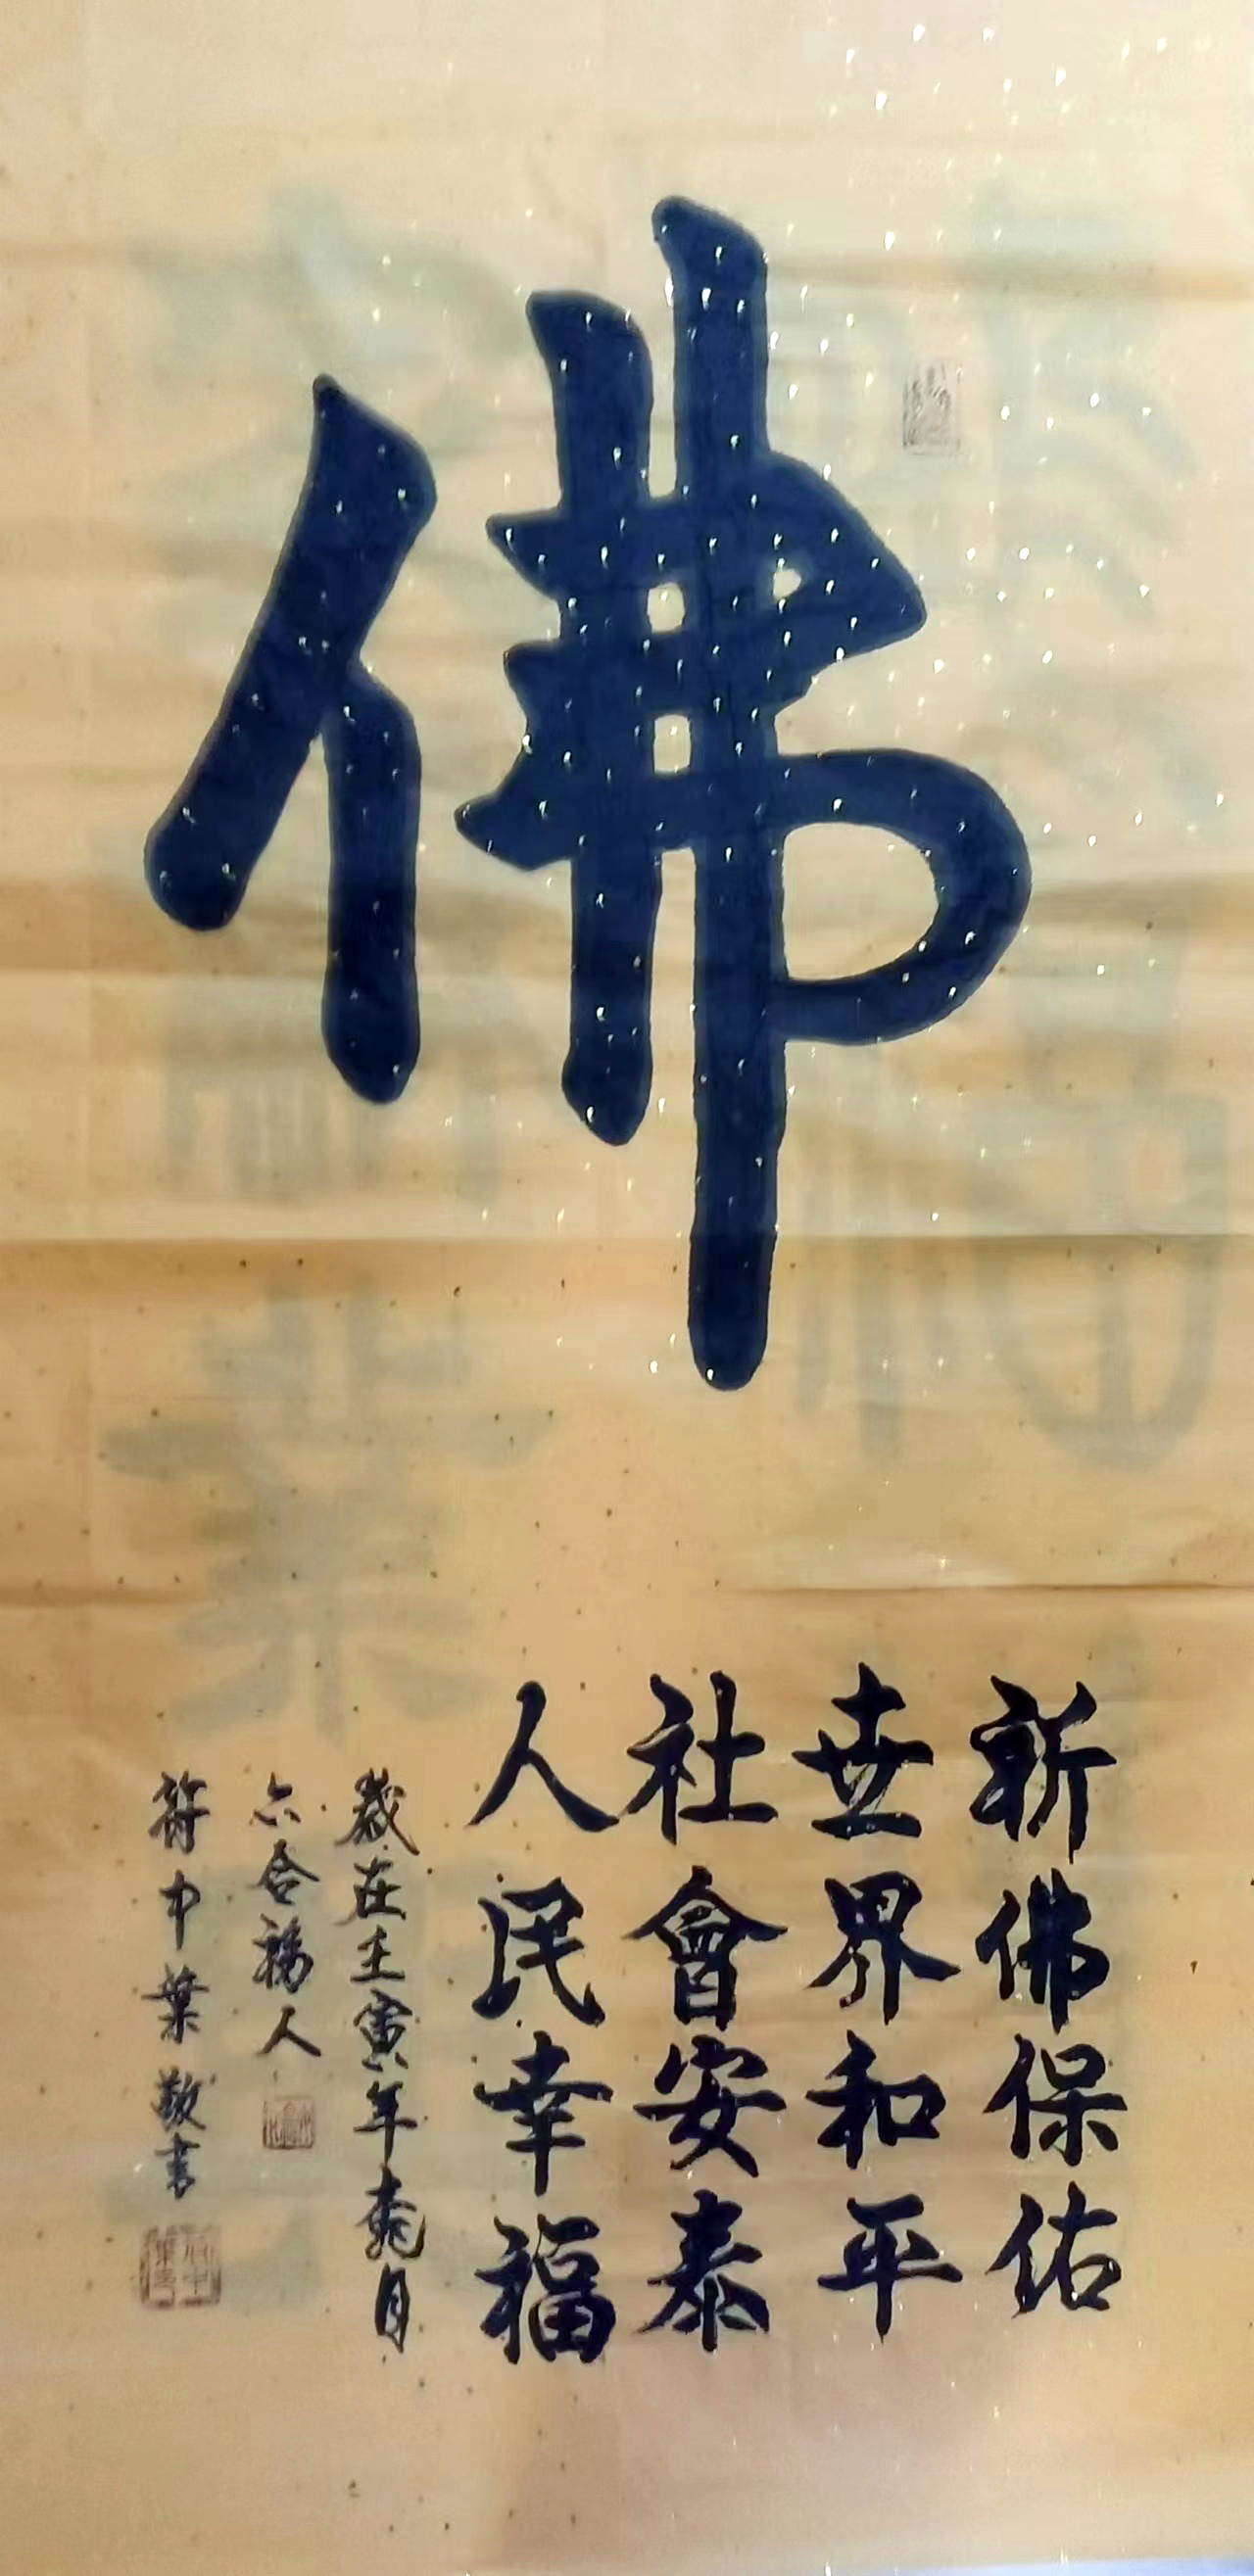 佛
祈佛保佑
世界和平
社會安泰
人民幸福
歲在壬寅年桃月
六合福人
符中葉敬書